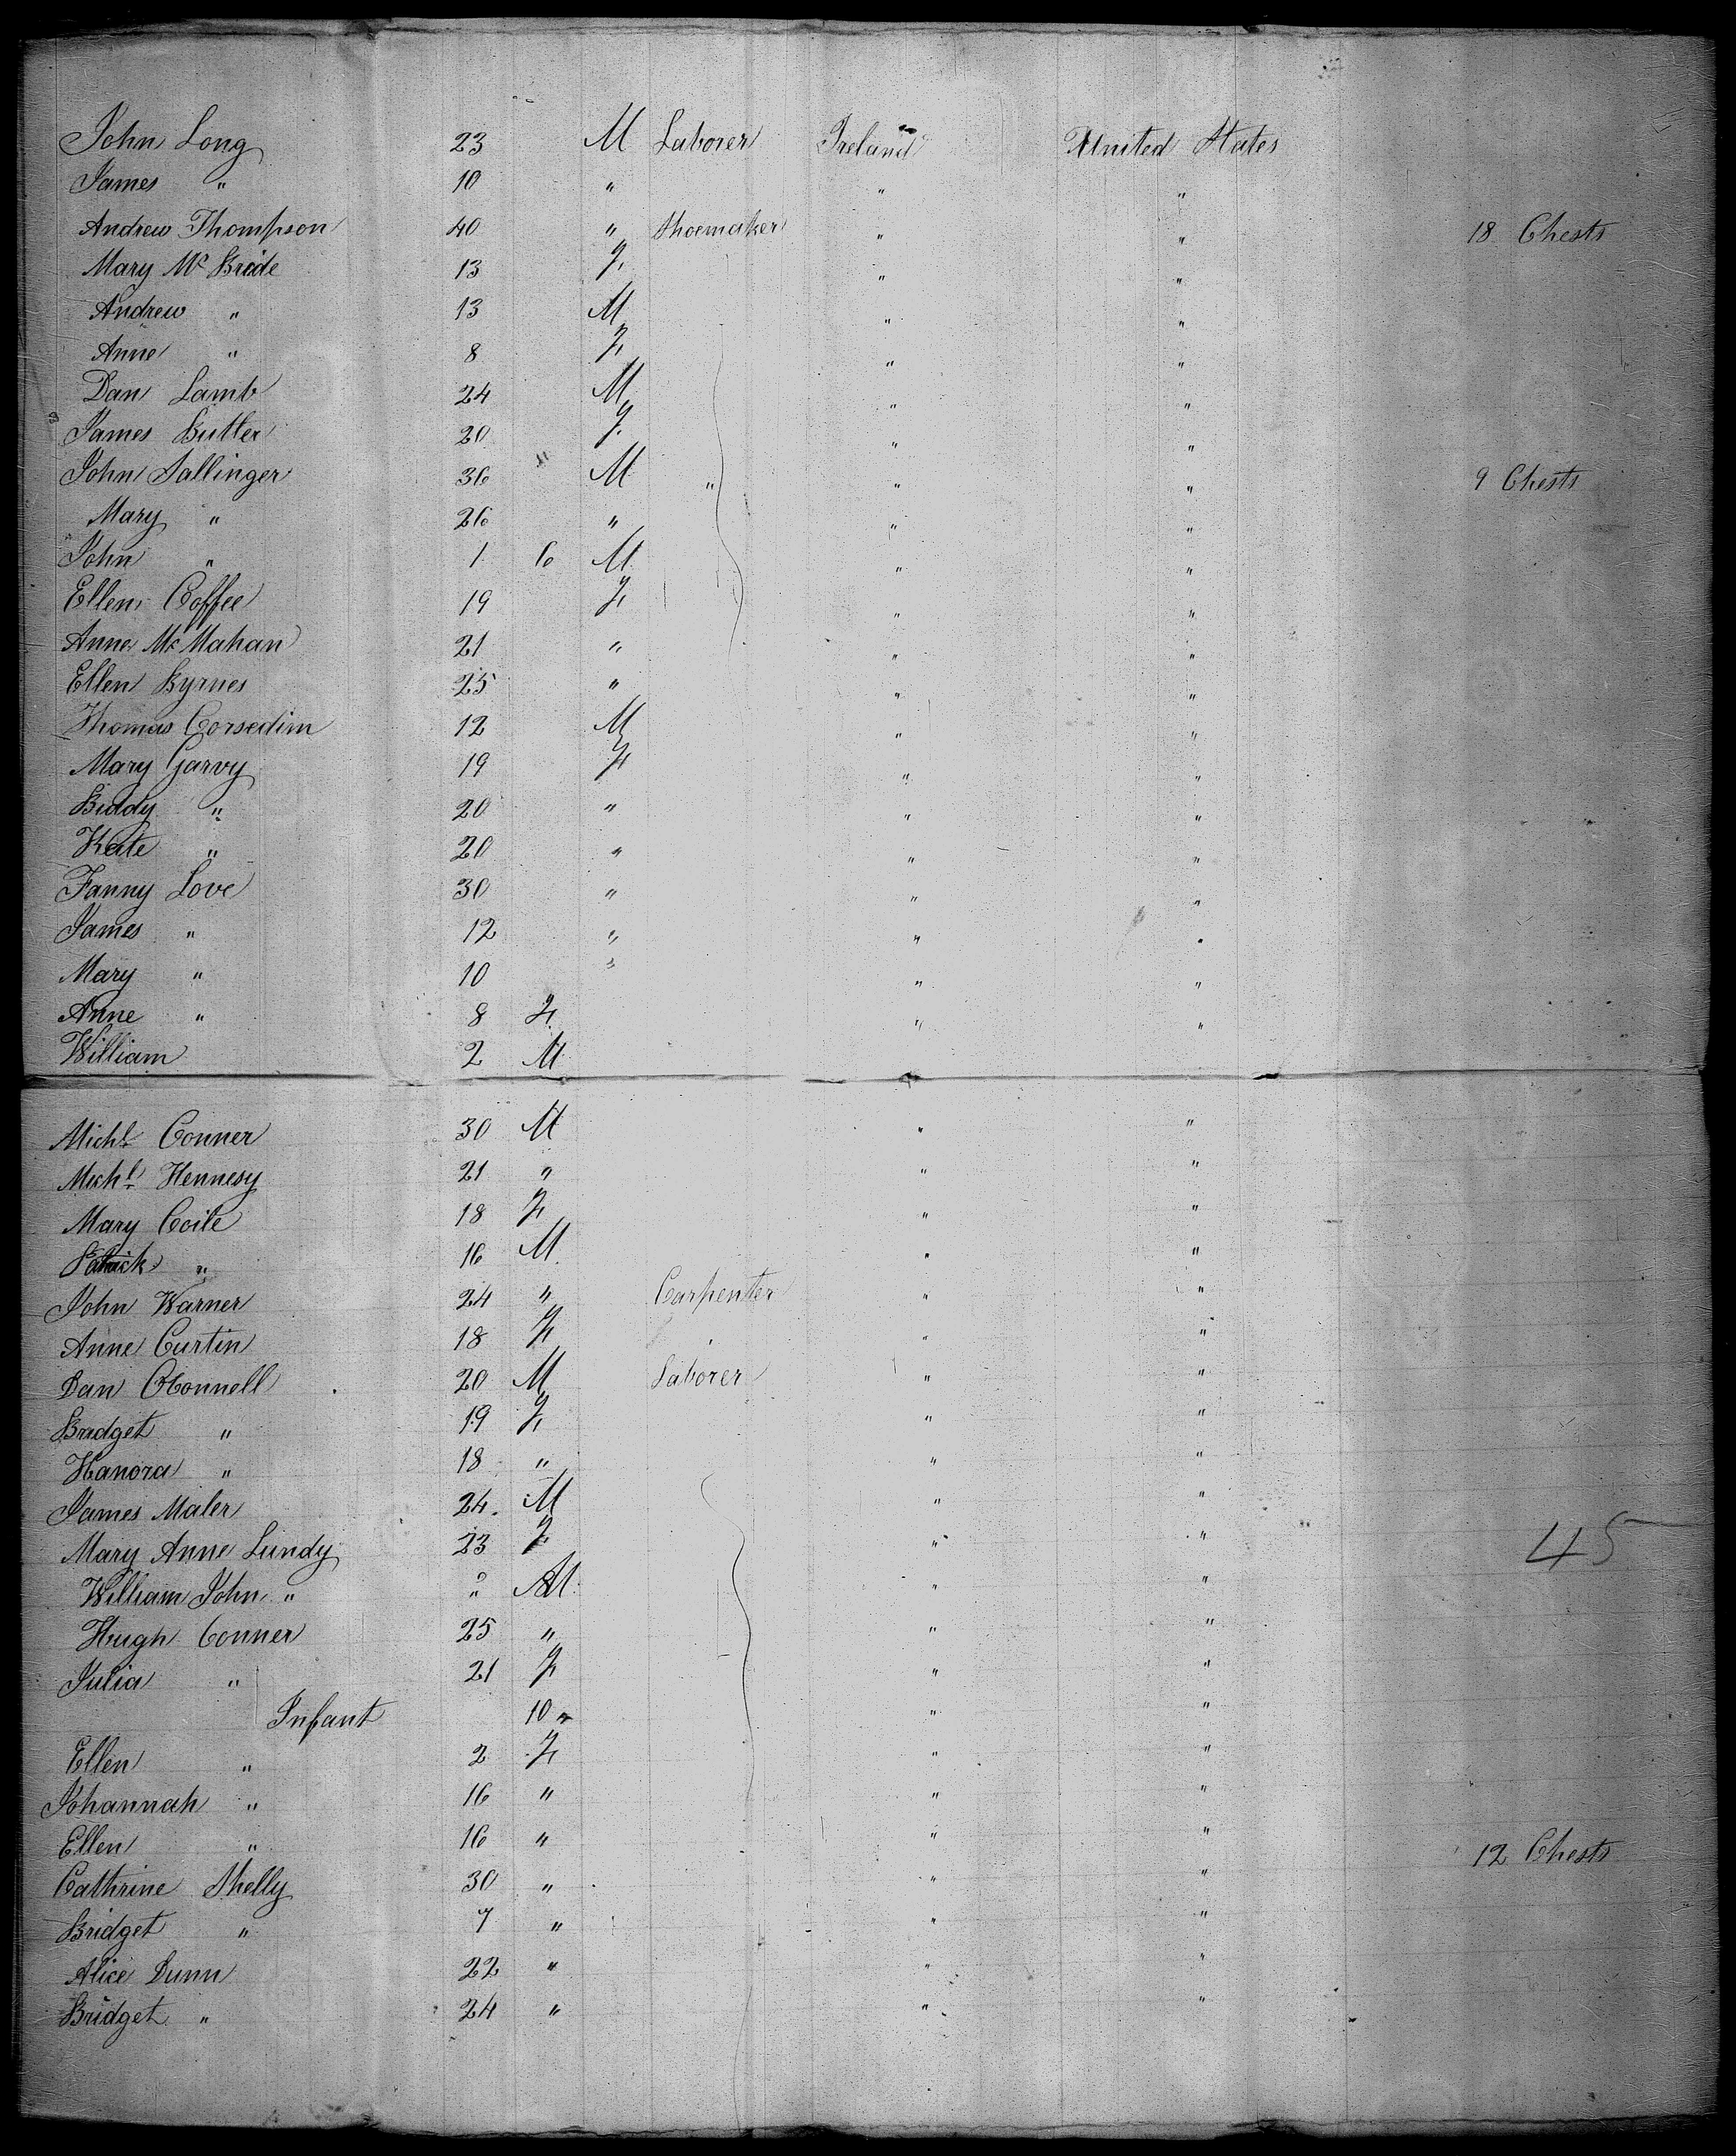 John Long 23 M Laborer Ireland United States
James " 10 " " "
Andrew Thompson 40 " Shoemaker " " 18 Chests
Mary Mc Bride 13 F " "
Andrew " 13 M " "
Anne " 8 F " "
Dan Lamb 24 M " "
James Butler 20 F " "
John Sallinger 36 M " " " 9 Chests
Mary " 26 " " "
John " 1 6 M " "
Ellen Coffee 19 F " "
Anne Mc Mahan 21 " " "
Ellen Byrnes 25 " " "
Thomas Corsedim 12 M " "
Mary Garvy 19 F " "
Biddy " 20 " " "
Kate " 20 " " "
Fanny Love 30 " " "
James " 12 " " "
Mary " 10 " " "
Anne " 8 F " "
William 2 M
Michl Conner 30 M " "
Michl Hennesy 21 " " "
Mary Coile 18 F " "
Patrick " 16 M " "
John Warner 24 " Carpenter " "
Anne Curtin 18 F " "
Dan OConnell 20 M Laborer " "
Bridget " 19 F " "
Hanora " 18 " " "
James Maler 24 M " "
Mary Anne Lundy 23 F " " 45
William John " " M " "
Hugh Conner 25 " " "
Julia " 21 F " "
Infant 10 " " "
Ellen " 2 F " "
Johannah " 16 " " "
Ellen " 16 " " " 12 Chests
Cathrine Shelly 30 " " "
Bridget " 7 " " "
Alice Dunn 22 " " "
Bridget " 24 " " "